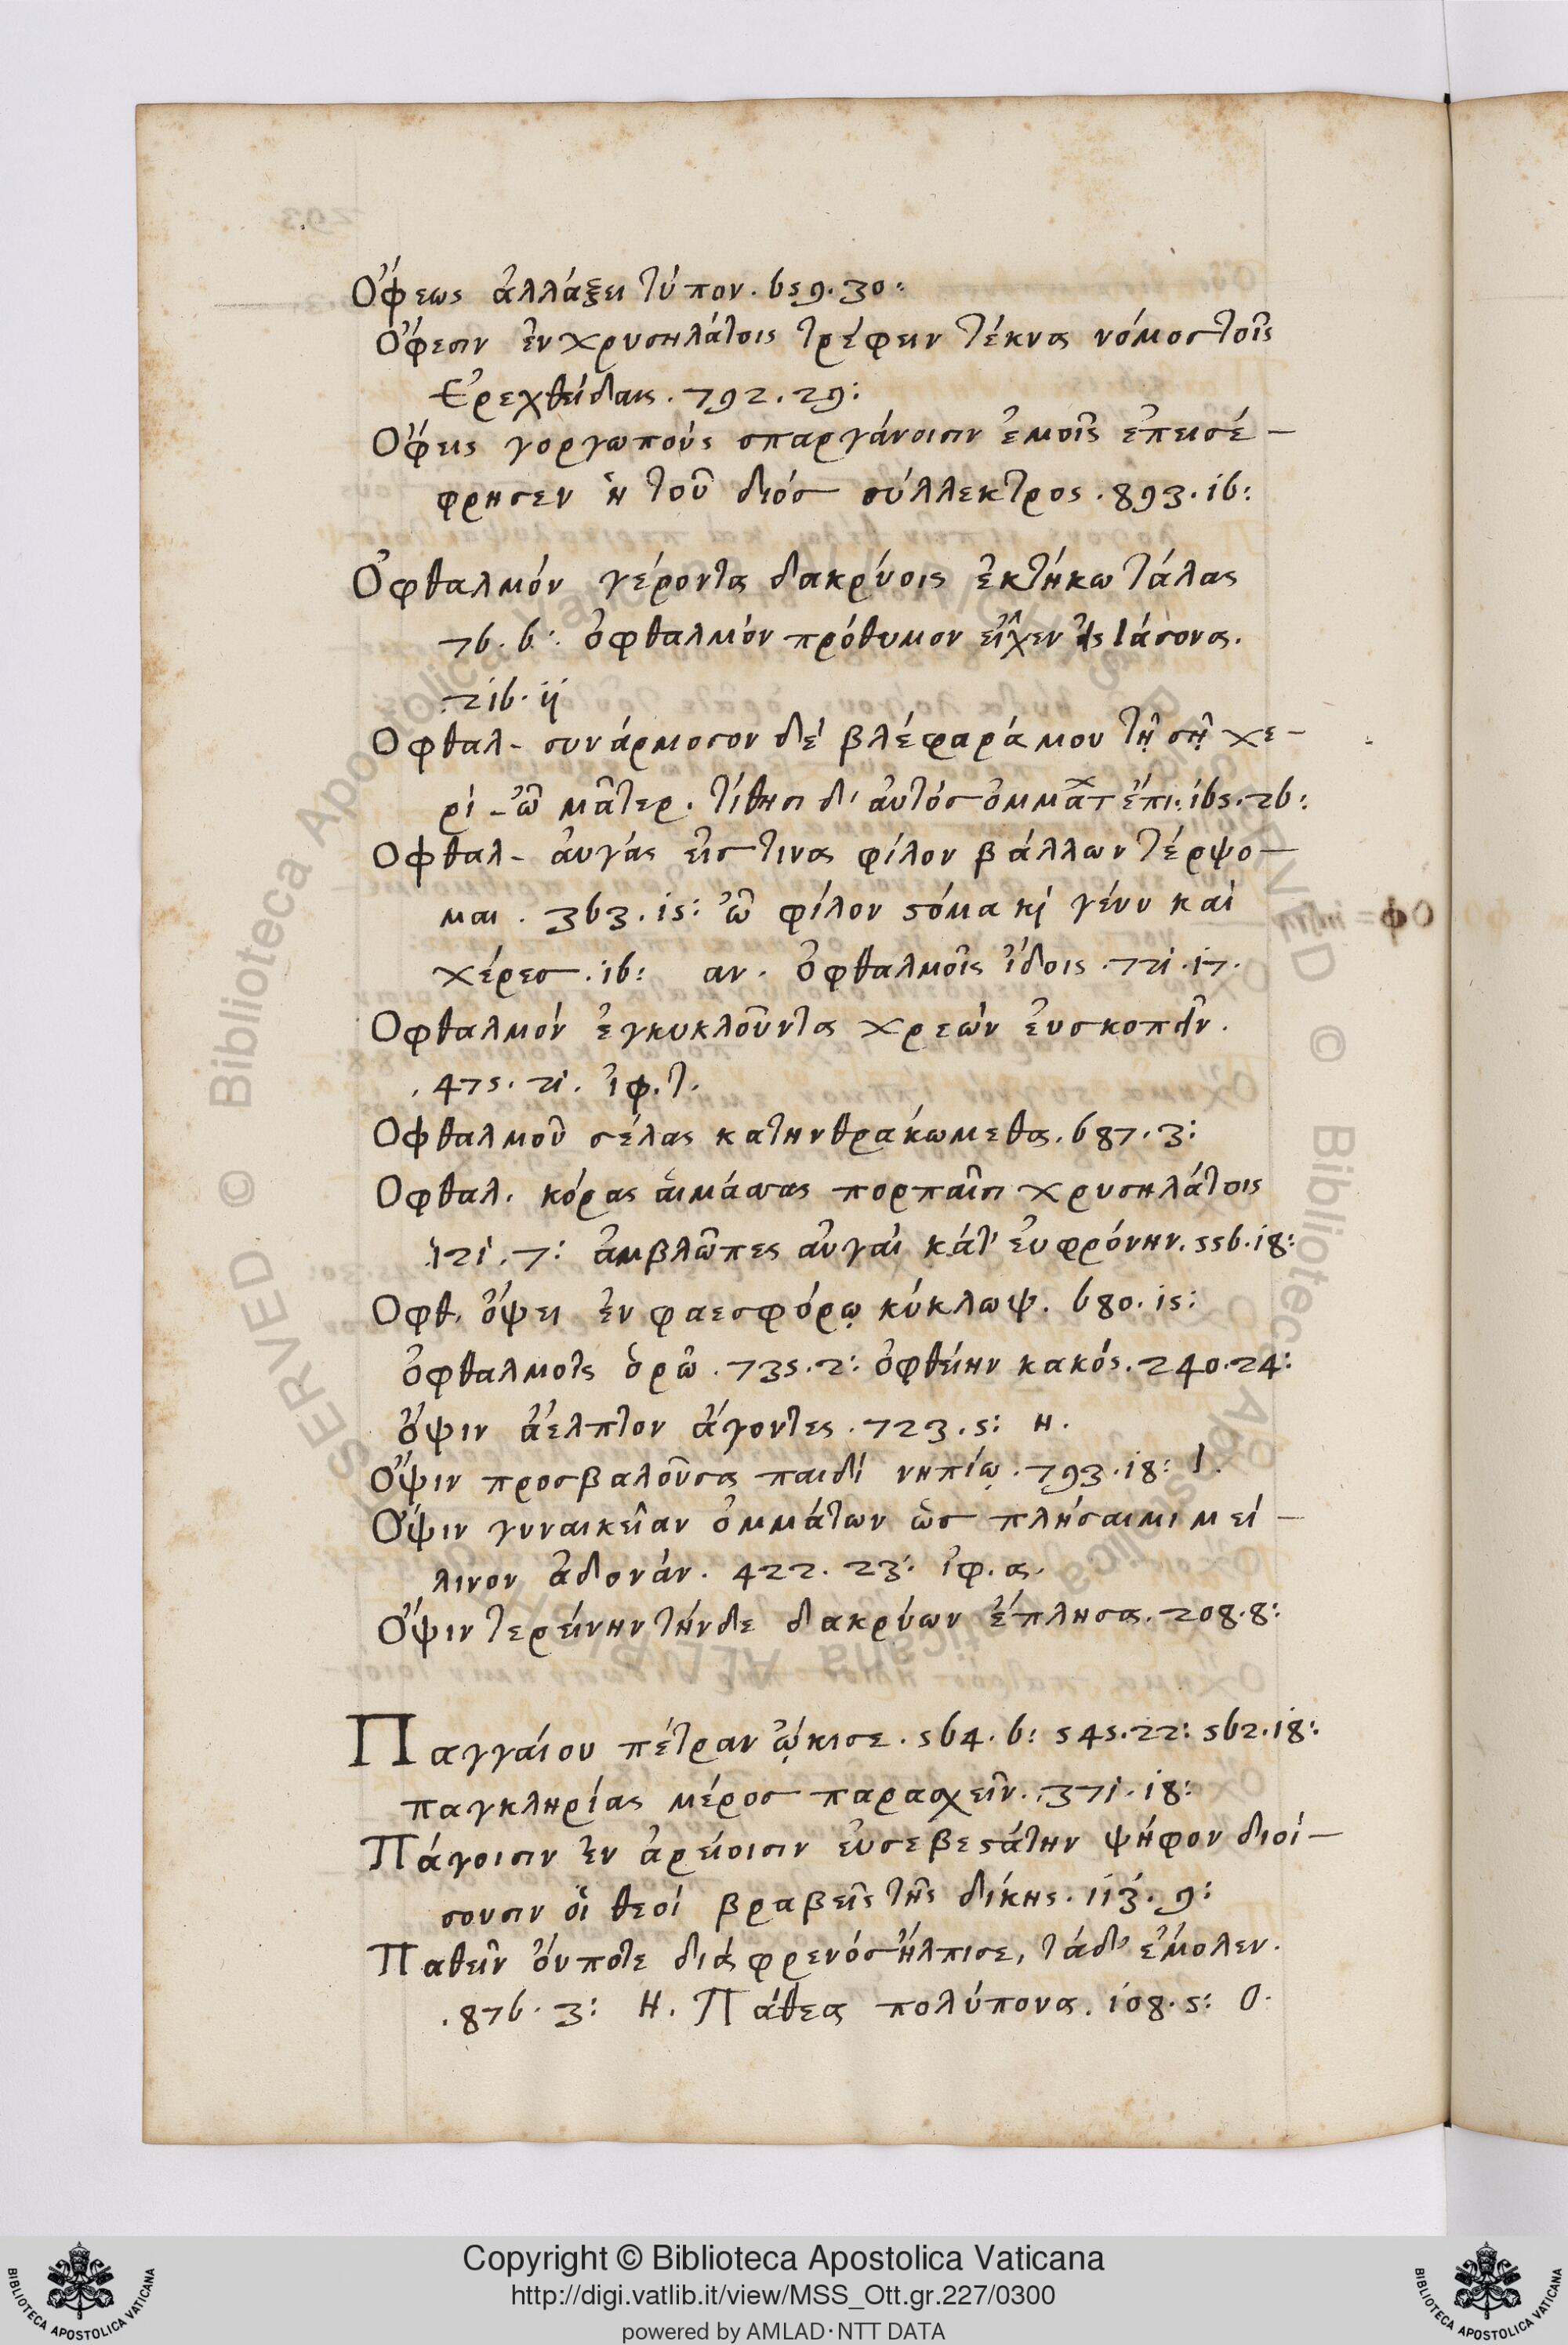 Ὄφεως ἀλλάξει τύπον. 659. 30:
Ὄφεσιν ἐν χρυσηλάτοις τρέφειν τέκνα νόμος τοῖς
Ἐρεχθείδαις. 792. 29:
Ὄφεις γοργωποὺς σπαργάνοισιν ἐμοῖς ἐπεισέ-
φρησεν ἡ τοῦ διὸς σύλλεκτρος. 893. 16:
Ὀφθαλμὸν γέροντα δακρύοις ἐκτήκω τάλας
76. 6: ὀφθαλμὸν πρόθυμον εἶχεν εἰς Ἰάσονα.
216. 11
Οφθαλ- συνάρμοσον δὲ βλέφαρά μου τῇ σῇ χε-
ρὶ - ὦ μᾶτερ. τίθησι δ' αὐτὸς ὀμμάτ ἔπι: 165. 26:
Οφθαλ- αὐγὰς εἰς τίνα φίλον βάλλων τέρψο-
μαι. 363. 15: ὦ φίλον ϛόμα κὶ γένυ καὶ
χέρες. 16: αν. ὀφθαλμοῖς ἴδοις. 721. 17.
Οφθαλμὸν ἐγκυκλοῦντα χρεὼν εὐσκοπεῖν.
. 475. 21. ἰφ. τ.
Οφθαλμοῦ σέλας κατηνθρακώμεθα. 687. 3:
Οφθαλ. κόρας αἱμάσας πορπαῖσι χρυσηλάτοις
121. 7: ἀμβλῶπες αὐγαὶ κἀτ' εὐφρόνην. 556. 18:
Οφθ. ὄψει ἐν φαεσφόρῳ κύκλωψ. 680. 15:
ὀφθαλμοῖς ὁρῶ. 735. 2: ὀφθείην κακός. 240. 24:
ὄψιν ἄελπτον ἄγοντες. 723. 5: Η.
Ὄψιν προσβαλοῦσα παιδὶ νηπίῳ. 793. 18: Ι.
Ὄψιν γυναικεῖαν ὀμμάτων ὡς πλήσαιμι μεί-
λινον ἁδονάν. 422. 23: ἰφ. α.
Ὄψιν τερείνην τήνδε δακρύων ἔπλησα. 208. 8:
Παγγαίου πέτραν ᾤκισε. 564. 6: 545. 22: 562. 18:
παγκληρίας μέρος παρασχεῖν. 371. 18:
Πάγοισιν ἐν ἀρείοισιν εὐσεβεϛάτην ψήφον διοί-
σουσιν οἱ θεοὶ βραβεῖς τῆς δίκης. 113. 9:
Παθεῖν οὔποτε διὰ φρενὸς ἤλπισε, τάδ' ἔμολεν.
. 876. 3: Η. Πάθεα πολύπονα. 108. 5: Ο.
Copyright © Biblioteca Apostolica Vaticana
http://digi.vatlib.it/view/MSS_Ott.gr.227/0300
powered by AMLAD·NTT DATA